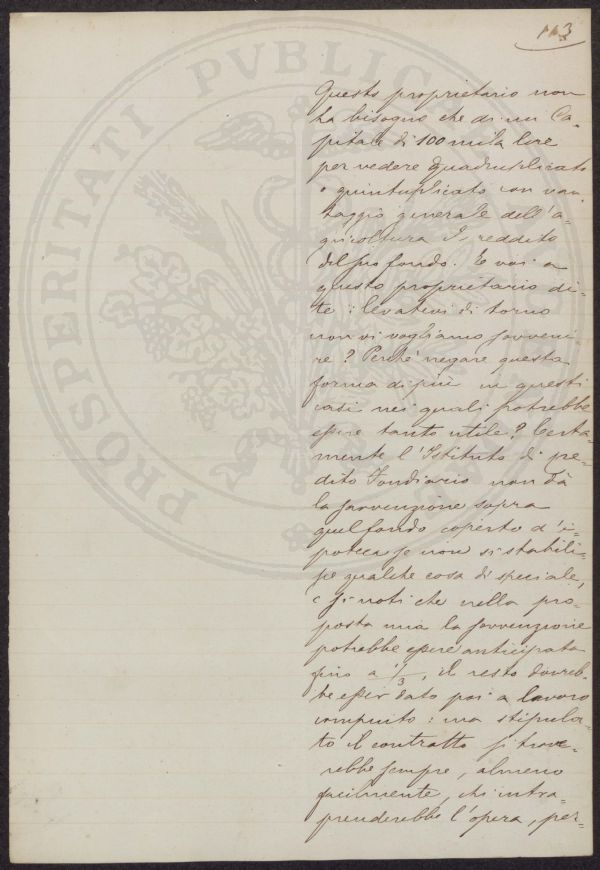 113
PROSPERITATI PVBLICAE
Questo proprietario non
ha bisogno che di un Ca-
pitale di 100 mila lire
per vedere quadruplicato
o quintuplicato con van-
taggio generale dell'a=
gricoltura il reddito
del suo fondo. E voi a
questo proprietario di=
te: levatevi di torno
non vi vogliamo sovveni
re? Perché negare questa
forma di più in questi
casi nei quali potrebbe
essere tanto utile? Certa=
mente l'Istituto di Cre=
dito Fondiario non dà
la sovvenzione sopra
quel fondo coperto d'i=
poteca se non si stabili=
sse qualche cosa di speciale,
e si noti che nella pro=
posta mia la sovvenzione
potrebbe essere anticipata
fino a 1/3, il resto dovreb=
be esser dato poi a lavoro
compiuto: ma stipula=
to il contratto si trove=
rebbe sempre, almeno
facilmente, chi intra=
prenderebbe l'opera, per=